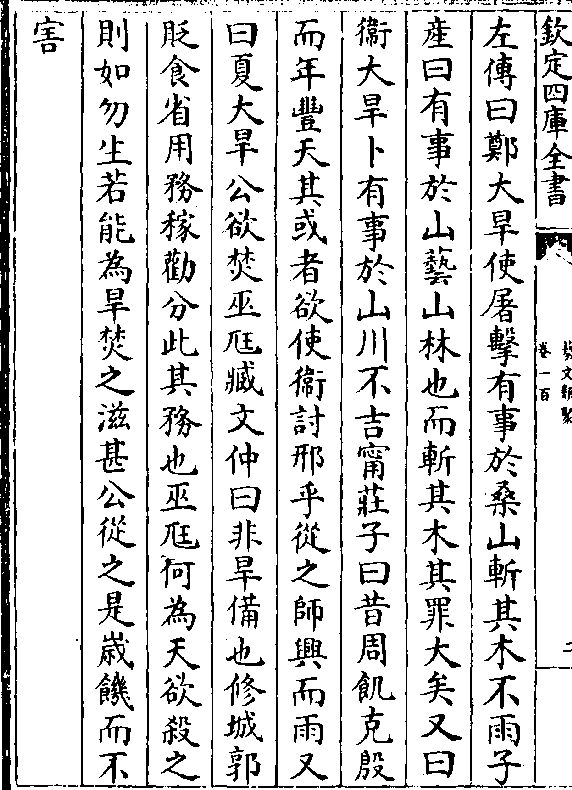 欽定四庫全書
藝文類聚
卷一百
二
左傳曰鄭大旱使屠擊有事於桑山斬其木不雨子
産曰有事於山藝山林也而斬其木其罪大矣又曰
衞大旱卜有事於山川不吉甯莊子曰昔周飢克殷
而年豐天其或者欲使衞討邢乎從之師興而雨又
曰夏大旱公欲焚巫尫臧文仲曰非旱備也修城郭
貶食省用務稼勸分此其務也巫尫何為天欲殺之
則如勿生若能為旱焚之滋甚公從之是嵗饑而不
害